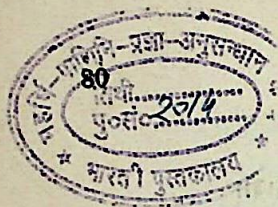 महर्षि-पाणिनि-प्रज्ञा-अनुसन्धान
80
तिथी..................
पु०सं० 2014
* भारती पुस्तकालय *